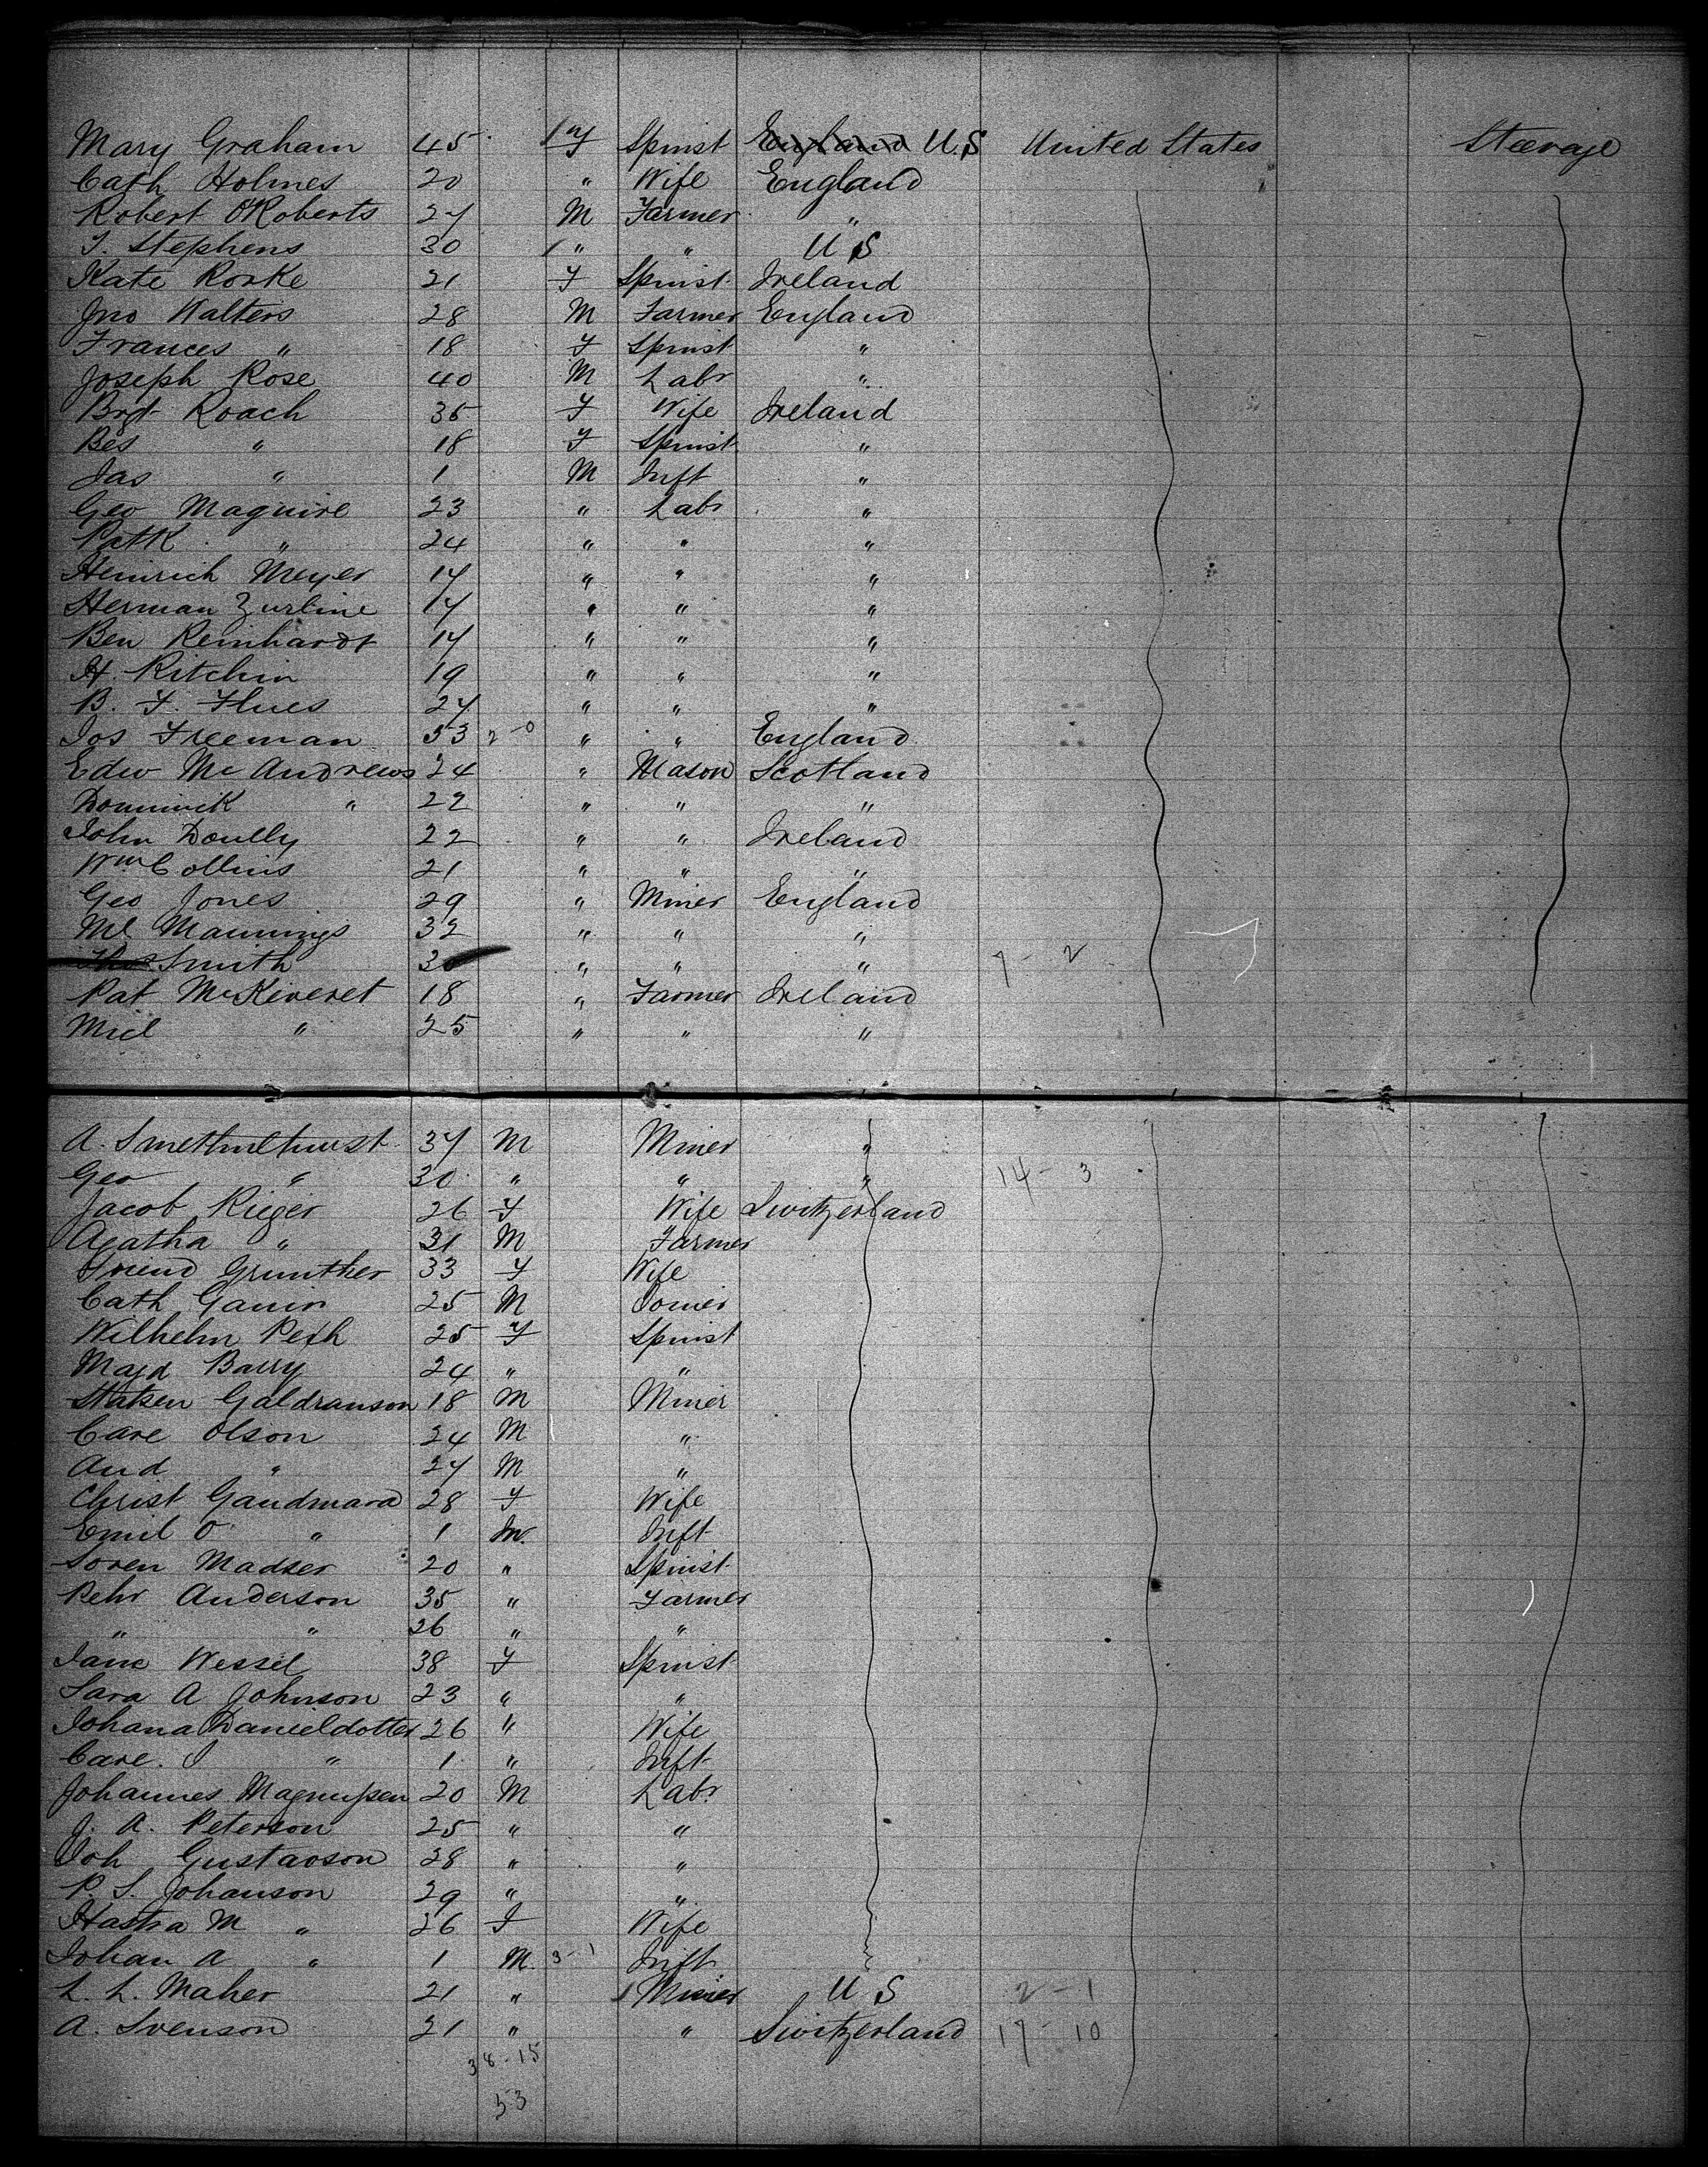 Mary Graham 45 1 " F Spinst England U.S United States Steerage
Cath Holmes 20 " Wife England
Robert O'Roberts 27 M Farmer "
T. Stephens 30 1 " " U S
Kate Rorke 21 F Spinst Ireland
Jno Walters 28 M Farmer England
Frances " 18 F Spinst "
Joseph Rose 40 M Labr "
Brgt Roach 35 F Wife Ireland
Bes " 18 F Spinst "
Jas " 1 M Inft "
Geo Maguire 23 " Labr "
Patk " 24 " " "
Heinrich Meyer 17 " " "
Herman Zurline 17 " " "
Ben Reinhardt 17 " " "
H. Ritchin 19 " " "
B. F. Flues 27 " " "
Jos Freeman 53 2-0 " " England
Edw McAndrews 24 " Mason Scotland
Dominick " 22 " " "
John Doully 22 " " Ireland
Wm Collins 21 " " "
Geo Jones 29 " Miner England
Ml Mannings 32 " " "
Smith 30 " " " 7-2
Pat McKiveret 18 " Farmer Ireland
Micl " 25 " " "
A. Smethulhurst 37 M Miner "
Geo " 30 " " " 14-3
Jacob Rieger 26 F Wife Switzerland
Agatha " 31 M Farmer
Friend Grunther 33 F Wife
Cath Gauin 25 M Joiner
Wilhelm Peth 25 F Spinst
Magd Barry 24 " "
Staken Galdranson 18 M Miner
Care Olson 24 M "
And " 27 M "
Christ Gaudmara 28 F Wife
Emil O " 1 M. Inft
Soren Madser 20 " Spinst
Pehr Anderson 35 " Farmer
" " 26 " "
Jane Wessel 38 F Spinst
Sara A Johnson 23 " "
Johana Danieldotter 26 " Wife
Care. J " 1 " Inft
Johannes Magnussen 20 M Labr
J. A. Peterson 25 " "
Joh Gustavson 28 " "
P. S. Johanson 29 " "
Hastra M " 26 F Wife
Johan A " 1 M. 3-1 Inft
L. L. Maher 21 " 1 Miner U S 2-1
A. Svenson 21 " " Switzerland 17-10
38-15
53